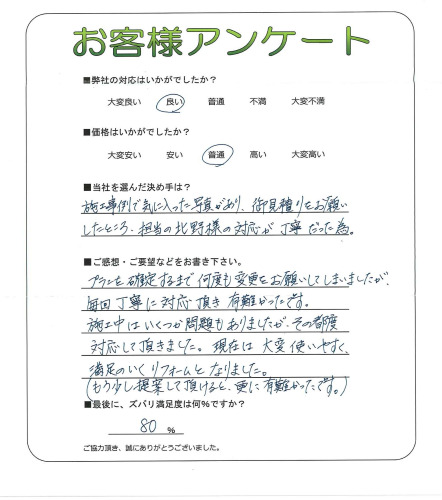 お客様アンケート
■弊社の対応はいかがでしたか?
大変良い 良い 普通 不満 大変不満
■価格はいかがでしたか?
大変安い 安い 普通 高い 大変高い
■当社を選んだ決め手は?
施工事例で気に入った写真があり、御見積りをお願い
したところ、担当の北野様の対応が丁寧だった為。
■ご感想・ご要望などをお書き下さい。
プランを確定するまで何度も変更をお願いしてしまいましたが、
毎回丁寧に対応頂き有難かったです。
施工中はいくつか問題もありましたが、その都度
対応して頂きました。現在は大変使いやすく、
満足のいくリフォームとなりました。
(もう少し提案して頂けると、更に有難かったです。)
■最後に、ズバリ満足度は何%ですか?
80 %
ご協力頂き、誠にありがとうございました。